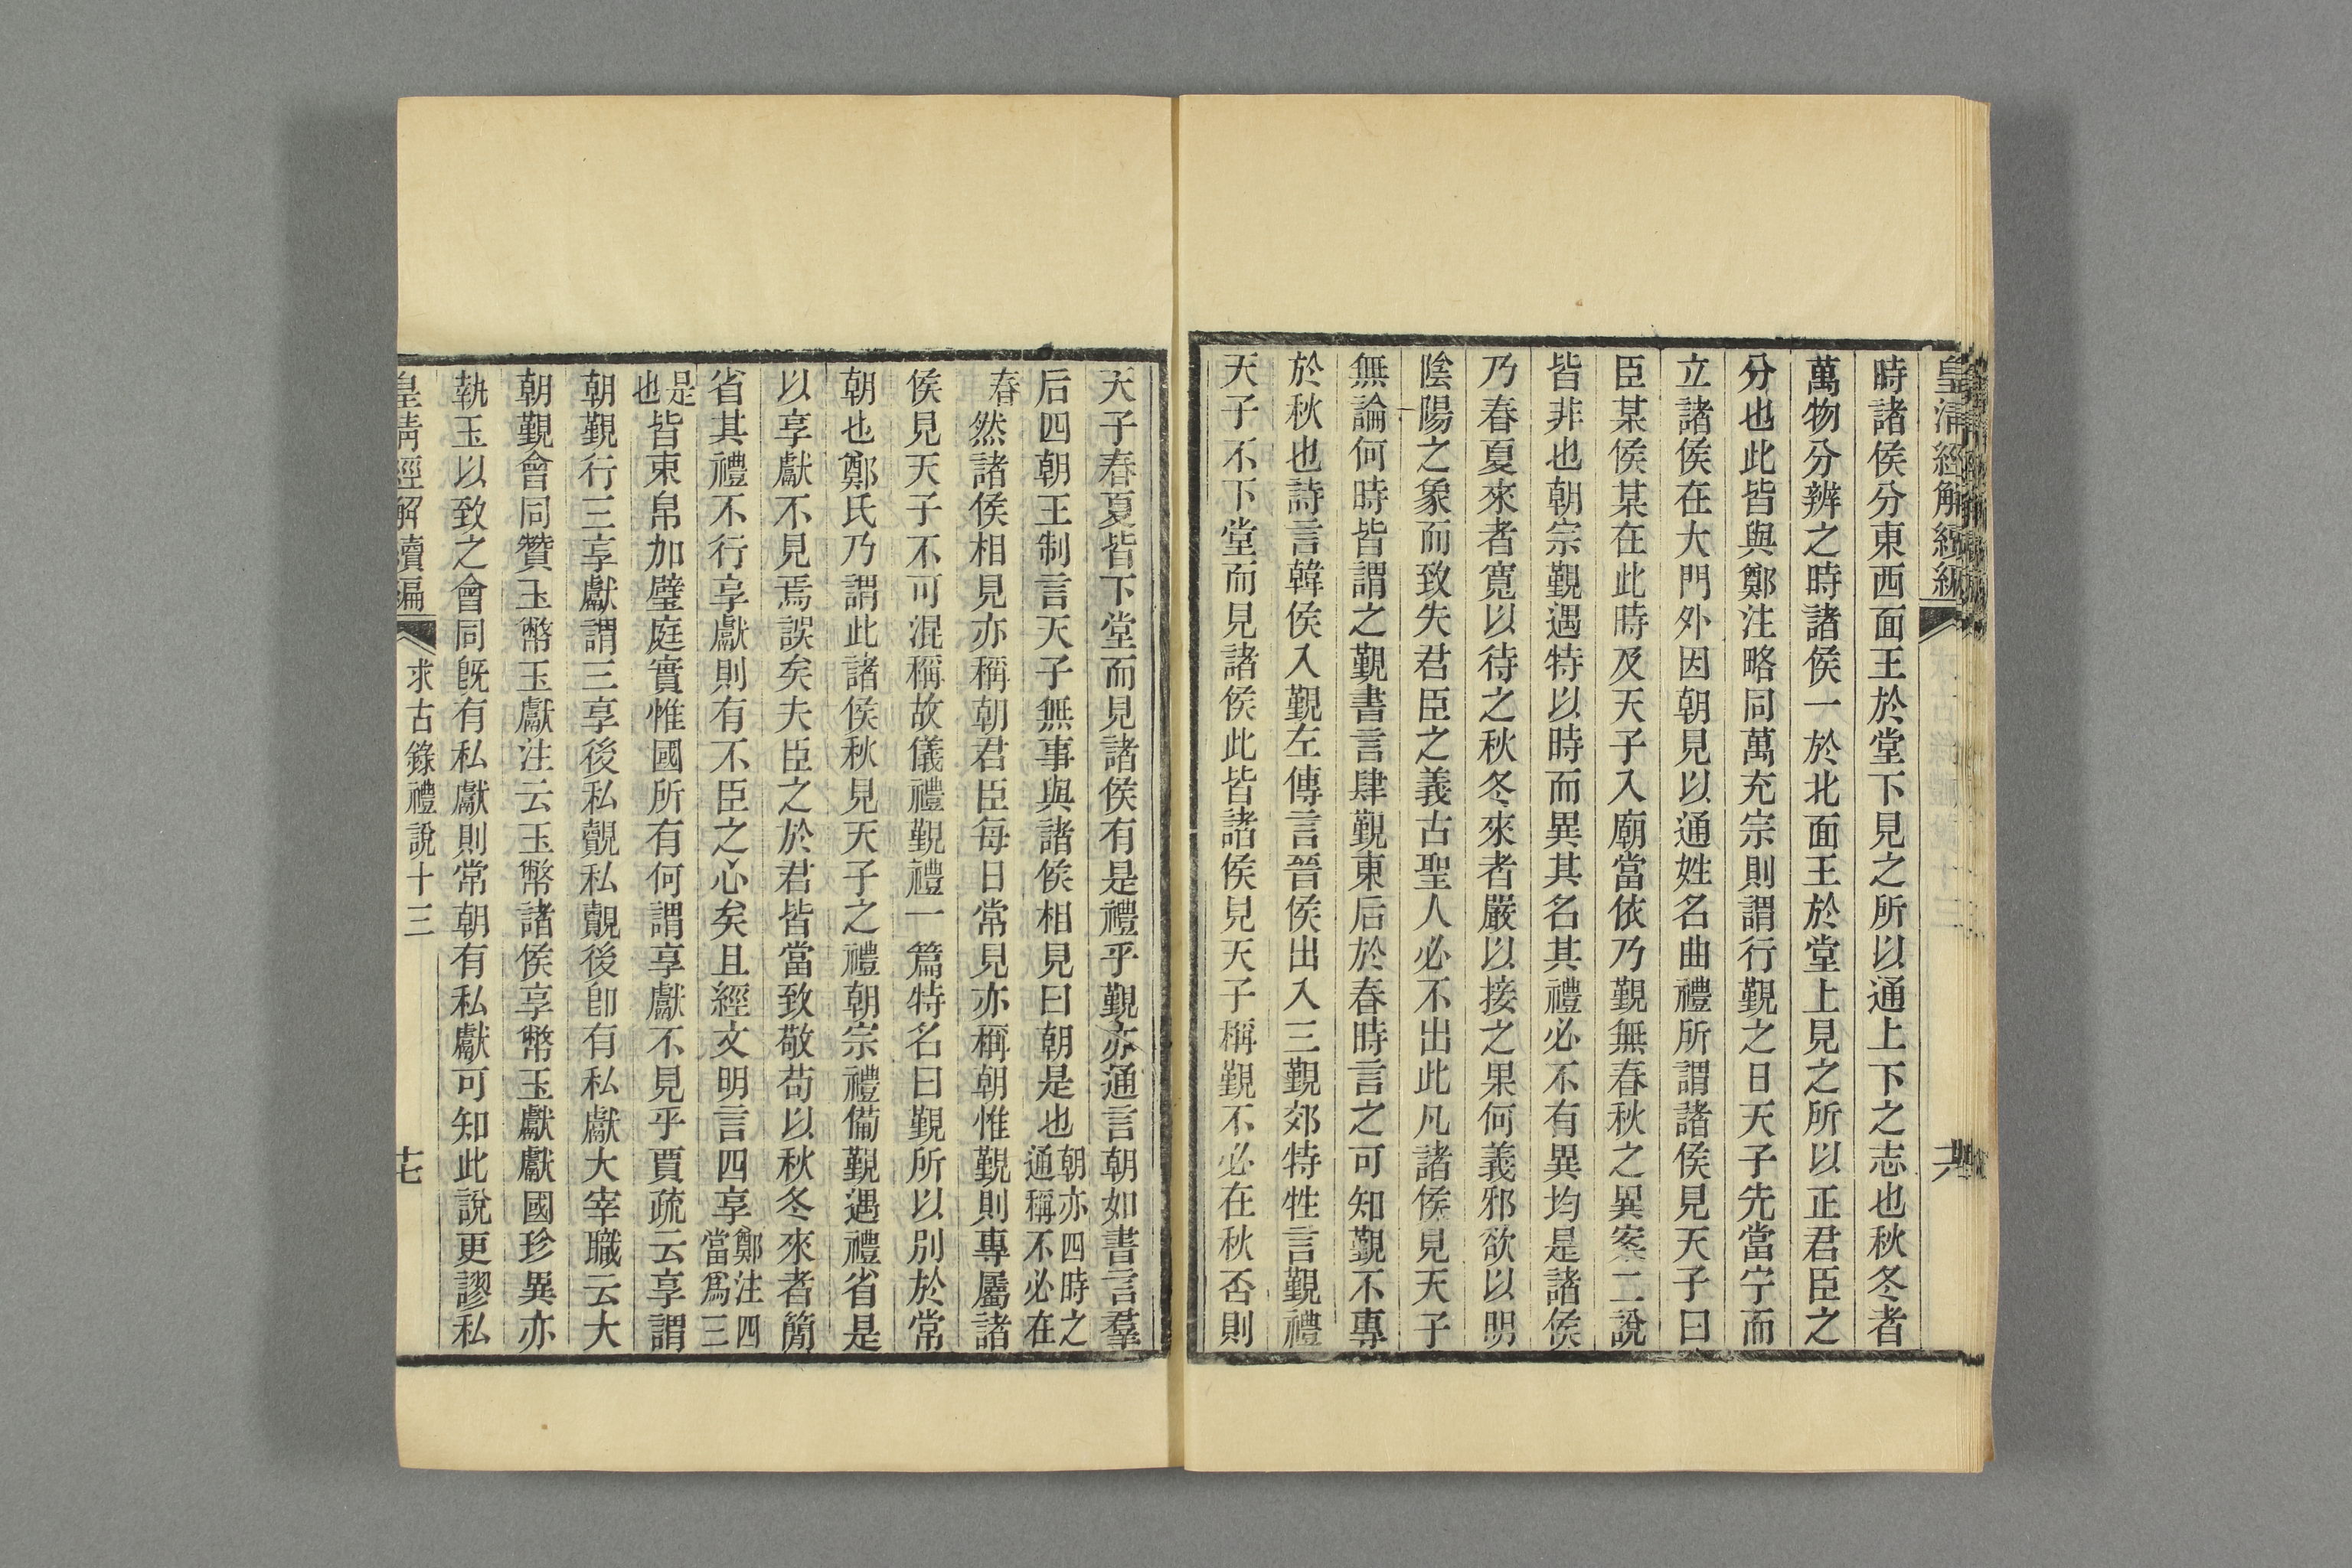 皇清經解續編
時諸侯分東西面王於堂下見之所以通上下之志也秋冬者
萬物分辨之時諸侯一於北面王於堂上見之所以正君臣之
分也此皆與鄭注略同萬充宗則謂行覲之日天子先當宁而
立諸侯在大門外因朝見以通姓名曲禮所謂諸侯見天子曰
臣某侯某在此時及天子入廟當依乃覲無春秋之異案二說
皆非也朝宗覲遇特以時而異其名其禮必不有異均是諸侯
乃春夏來者寬以待之秋冬來者嚴以接之果何義邪欲以明
陰陽之象而致失君臣之義古聖人必不出此凡諸侯見天子
無論何時皆謂之覲書言肆覲東后於春時言之可知覲不專
於秋也詩言韓侯入覲左傳言晉侯出入三覲郊特牲言覲禮
天子不下堂而見諸侯此皆諸侯見天子稱覲不必在秋否則
天子春夏皆下堂而見諸侯有是禮乎覲亦通言朝如書言羣
后四朝王制言天子無事與諸侯相見曰朝是也朝亦四時之通稱不必在
春然諸侯相見亦稱朝君臣每日常見亦稱朝惟覲則專屬諸
侯見天子不可混稱故儀禮覲禮一篇特名曰覲所以別於常
朝也鄭氏乃謂此諸侯秋見天子之禮朝宗禮備覲遇禮省是
以享獻不見焉誤矣夫臣之於君皆當致敬苟以秋冬來者簡
省其禮不行享獻則有不臣之心矣且經文明言四享鄭注四當爲三
是也皆束帛加璧庭實惟國所有何謂享獻不見乎賈疏云享謂
朝覲行三享獻謂三享後私覿私覿後卽有私獻大宰職云大
朝覲會同贊玉幣玉獻注云玉幣諸侯享幣玉獻獻國珍異亦
執玉以致之會同旣有私獻則常朝有私獻可知此說更謬私
皇清經解續編
求古錄禮說十三